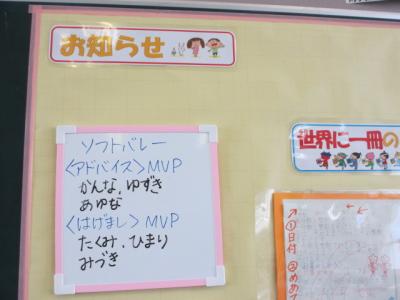 お知らせ
ソフトバレー
<アドバイス>MVP
かんな、ゆずき
あゆな
<はげまし>MVP
たくみ、ひまり
みづき
世界に一冊の
①日付
②めあて